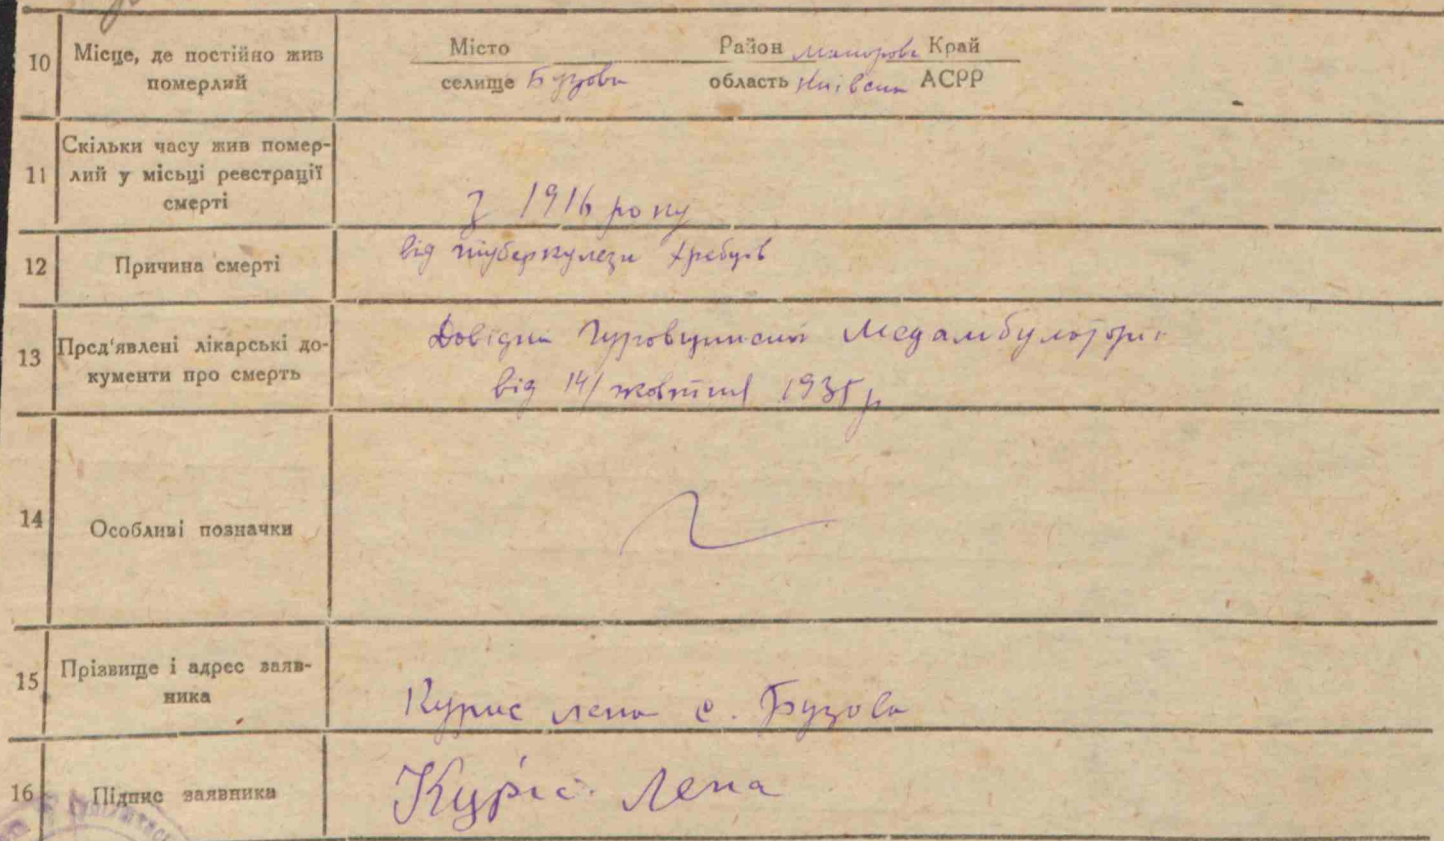 10 Місце, де постійно жив
померлий
Місто Район Макарів Край
селище Бузова область Київськ АСРР
11 Скільки часу жив помер-
лий у місьці реєстрації
смерті
З 1916 року
12 Причина смерті
від туберкулези хребців
13 Пред'явлені лікарські до-
кументи про смерть
Довідка Гуровщинської Медамбулаторії
від 14/жовтня 1935 р
14 Особливі позначки
15 Прізвище і адрес заяв-
ника
Курис лена с. Бузова
16 Підпис заявника
Куріс. Лена